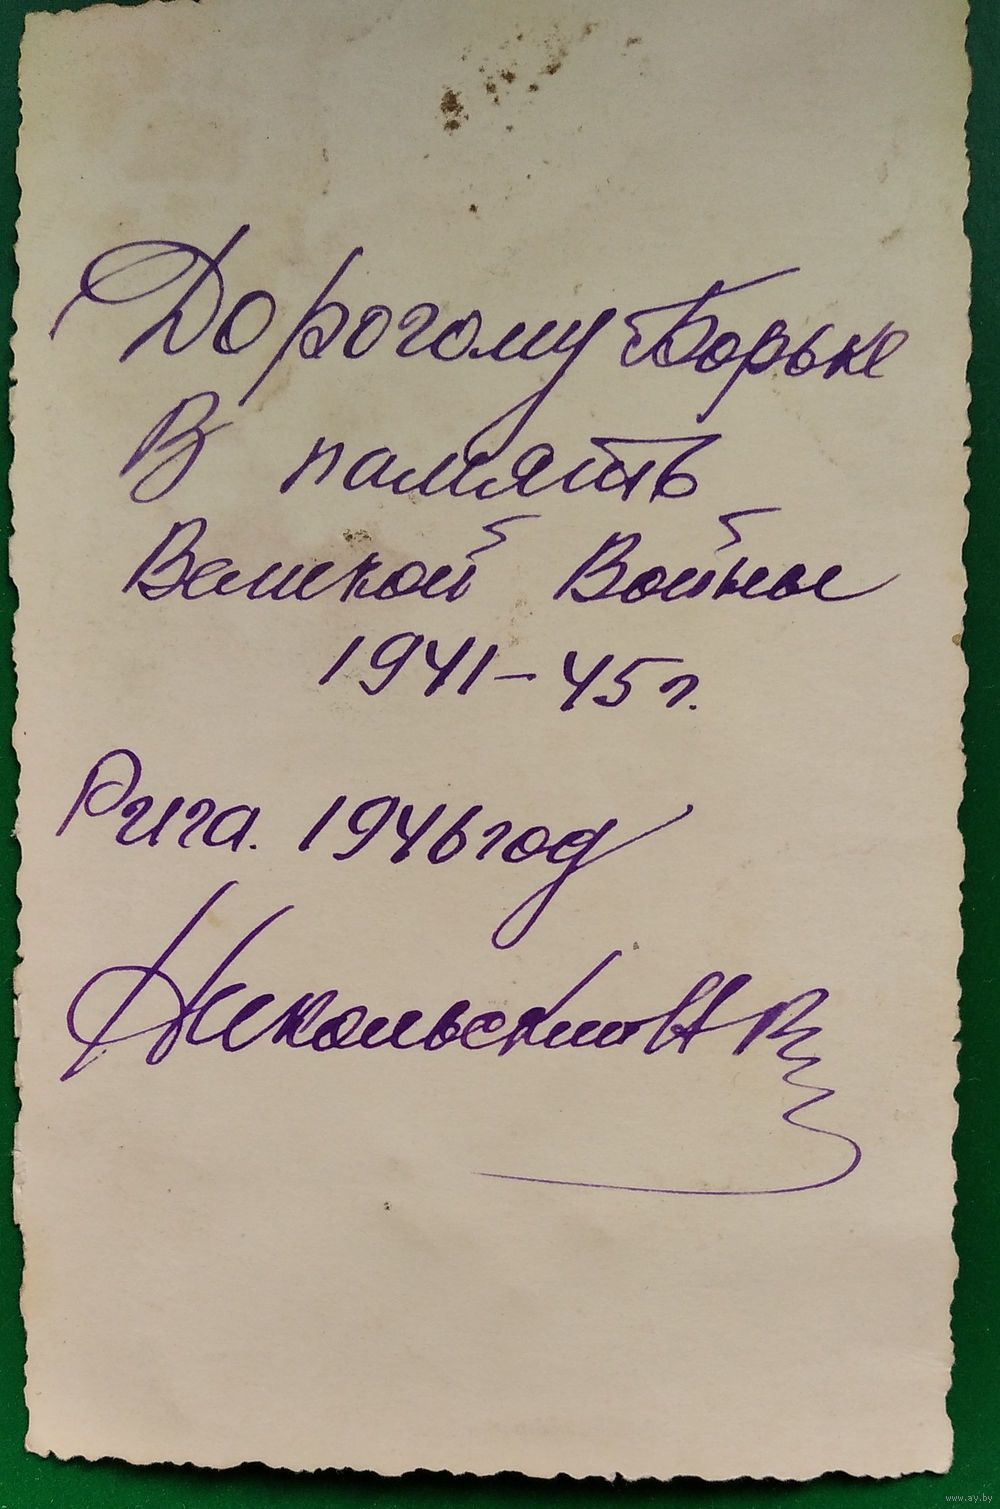 Дорогому Борьке
В память
Великой Войны
1941-45 г.
Рига. 1946 год
www.ay.by